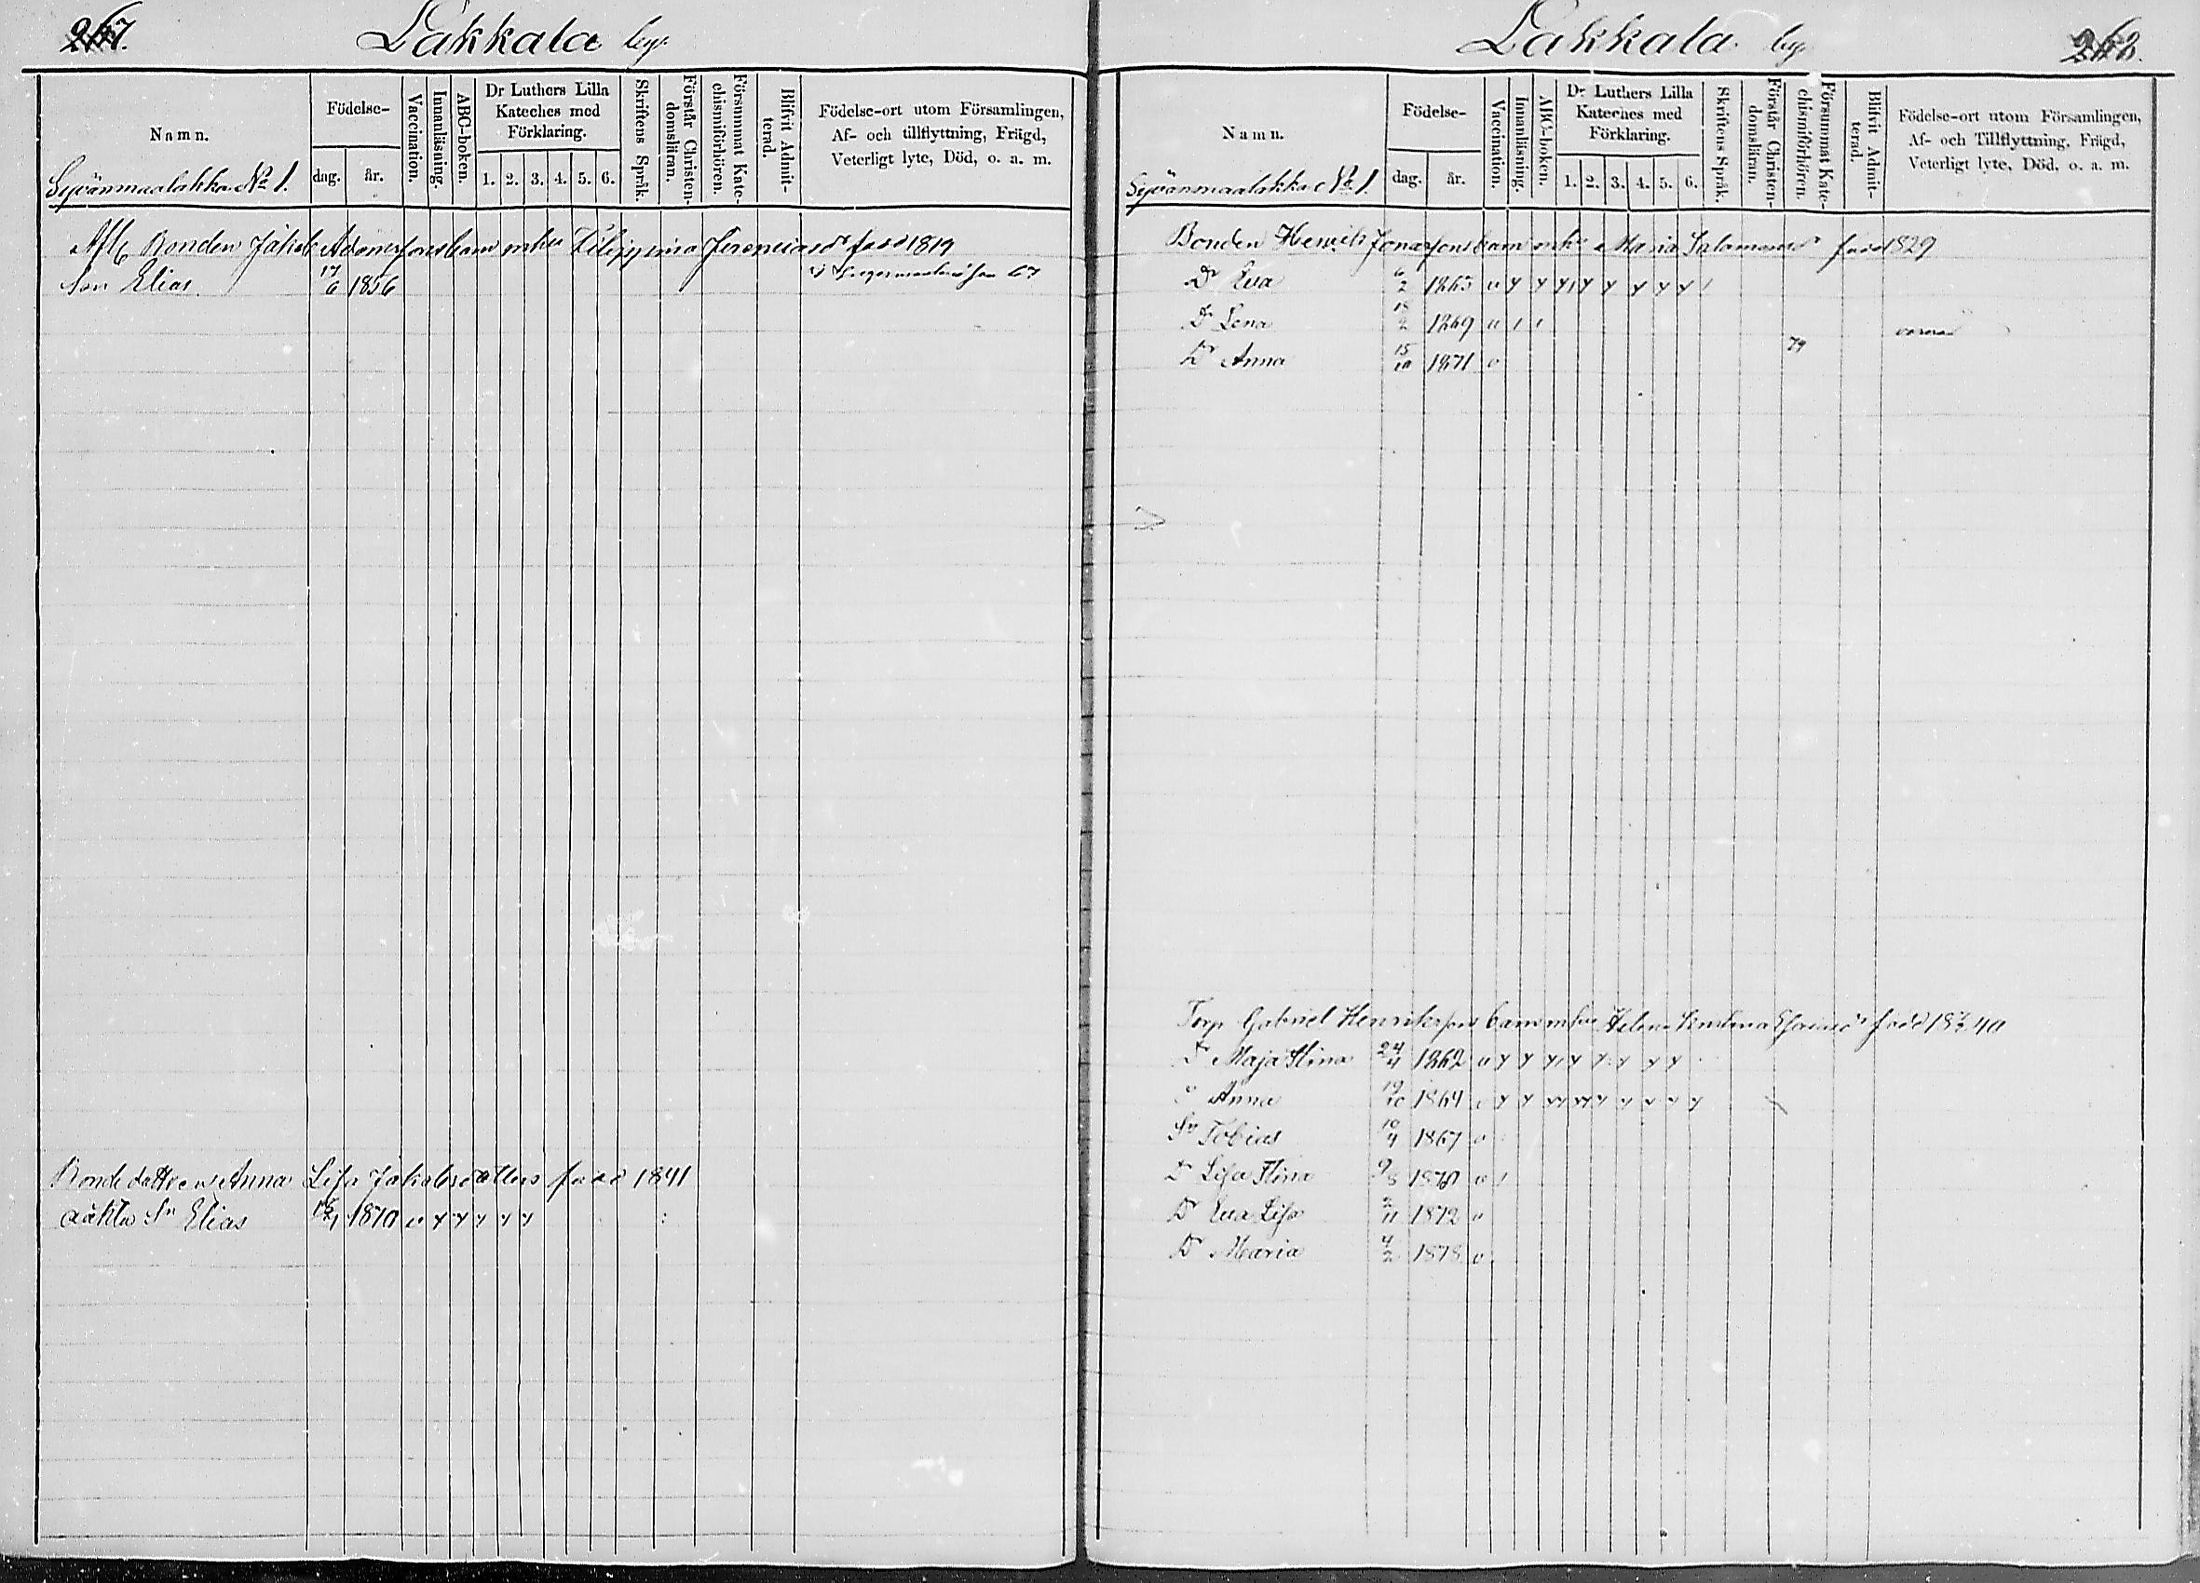 267.
Lakkala by.
Namn.
Födelse-
dag.
år.
Vaccination.
Innanläsning.
ABC-boken.
Dr Luthers Lilla
Kateches med
Förklaring.
1. 2. 3. 4. 5. 6.
Skriftens Språk.
Förstår Christen-
domsläran.
Försummat Kate-
chismiförhören.
Blifvit Admit-
terad.
Födelse-ort utom Församlingen,
Af- och tillflyttning, Frägd,
Veterligt lyte, Död, o. a. m.
Syvänmaalakka No 1.
Bonden Jakob barn född 1819
Son Elias 17/6 1856
Bondedottren Anna Lisa Jakobsdotters född 1841
oäkta Sn Elias 1870
Lakkala by.
268.
Namn.
Födelse-
dag.
år.
Vaccination.
Innanläsning.
ABC-boken.
Dr Luthers Lilla
Kateches med
Förklaring.
1. 2. 3. 4. 5. 6.
Skriftens Språk.
Förstår Christen-
domsläran.
Försummat Kate-
chismiförhören.
Blifvit Admit-
terad.
Födelse-ort utom Församlingen,
Af- och Tillflyttning, Frägd,
Veterligt lyte, Död, o. a. m.
Syvänmaalakka No 1.
Bonden Henrik Jonassons barn Maria född 1829
Dr Eva 6/2 1865
Dr Lena 18/2 1869
79
Dr Anna 15/10 1871
Torp. Gabriel Henrikssons barn Helena född 40
Dr Maja Stina 24/4 1862
Anna 19/10 1864
Sn Tobias 19/4 1867
Dr Lisa Stina 9/8 1870
Dr Eva Lisa 2/11 1872
Dr Maria 4/2 1878